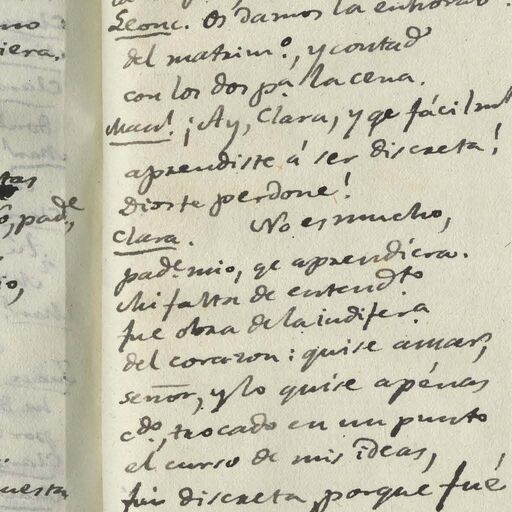 Leonc. Os damos la enhorab
del matrim.º, y contad
con los dos p.ª la cena.
Marl. ¡Ay, Clara, y qe fácilmte
aprendiste á ser discreta!
Dios te perdone!
Clara. No es mucho,
pade mio, qe aprendiera.
Mi falta de entendto
fue obra de la indifera
del corazon: quise amar,
señor, y lo quise apénas
cdo, trocado en un punto
el curso de mis ideas,
fui discreta, porque fué
iera.
tas
pade,
io,
uesta